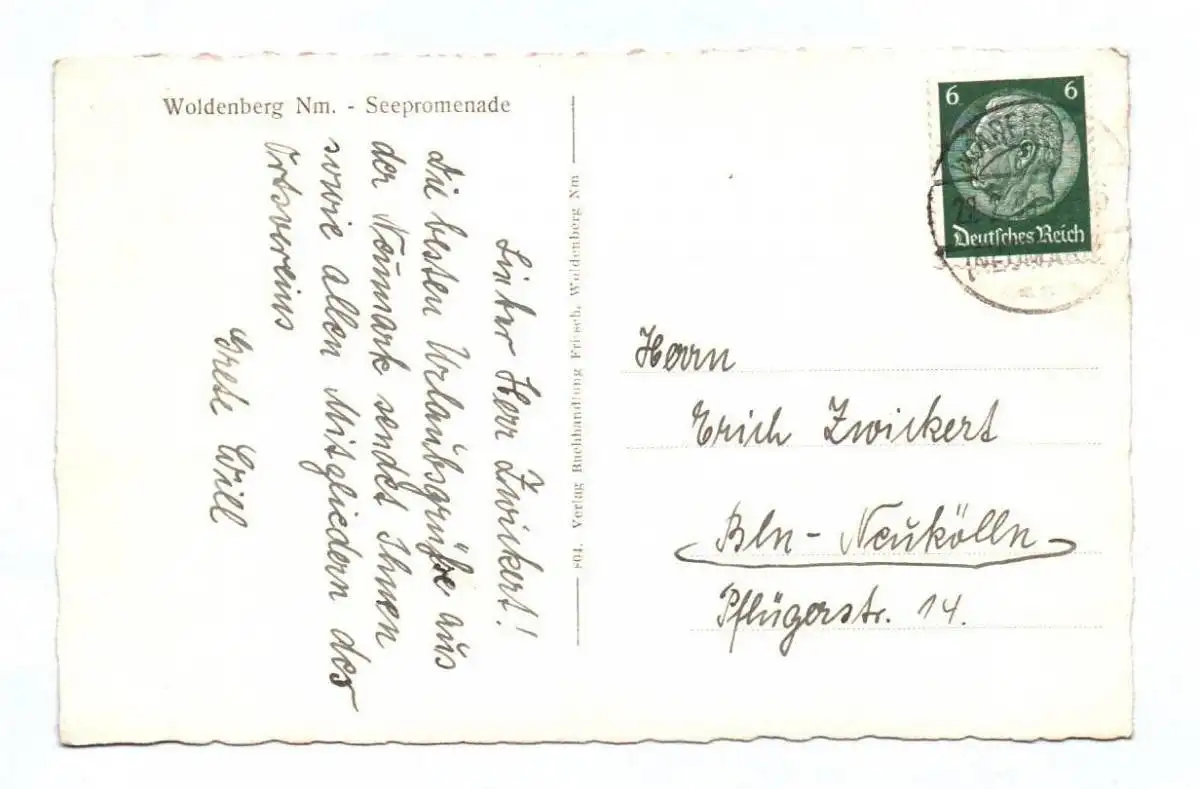 Woldenberg Nm. - Seepromenade
Lieber Herr Zwickert!
Die besten Urlaubsgrüße aus
der Neumark sendet Ihnen
sowie allen Mitgliedern des
Ortsvereins
Grete Will
804. Verlag Buchhandlung Friesch, Woldenberg Nm
6 6
Deutsches Reich
(NEUMARK)
Herrn
Erich Zwickert
Bln - Neukölln
Pflügerstr. 14.